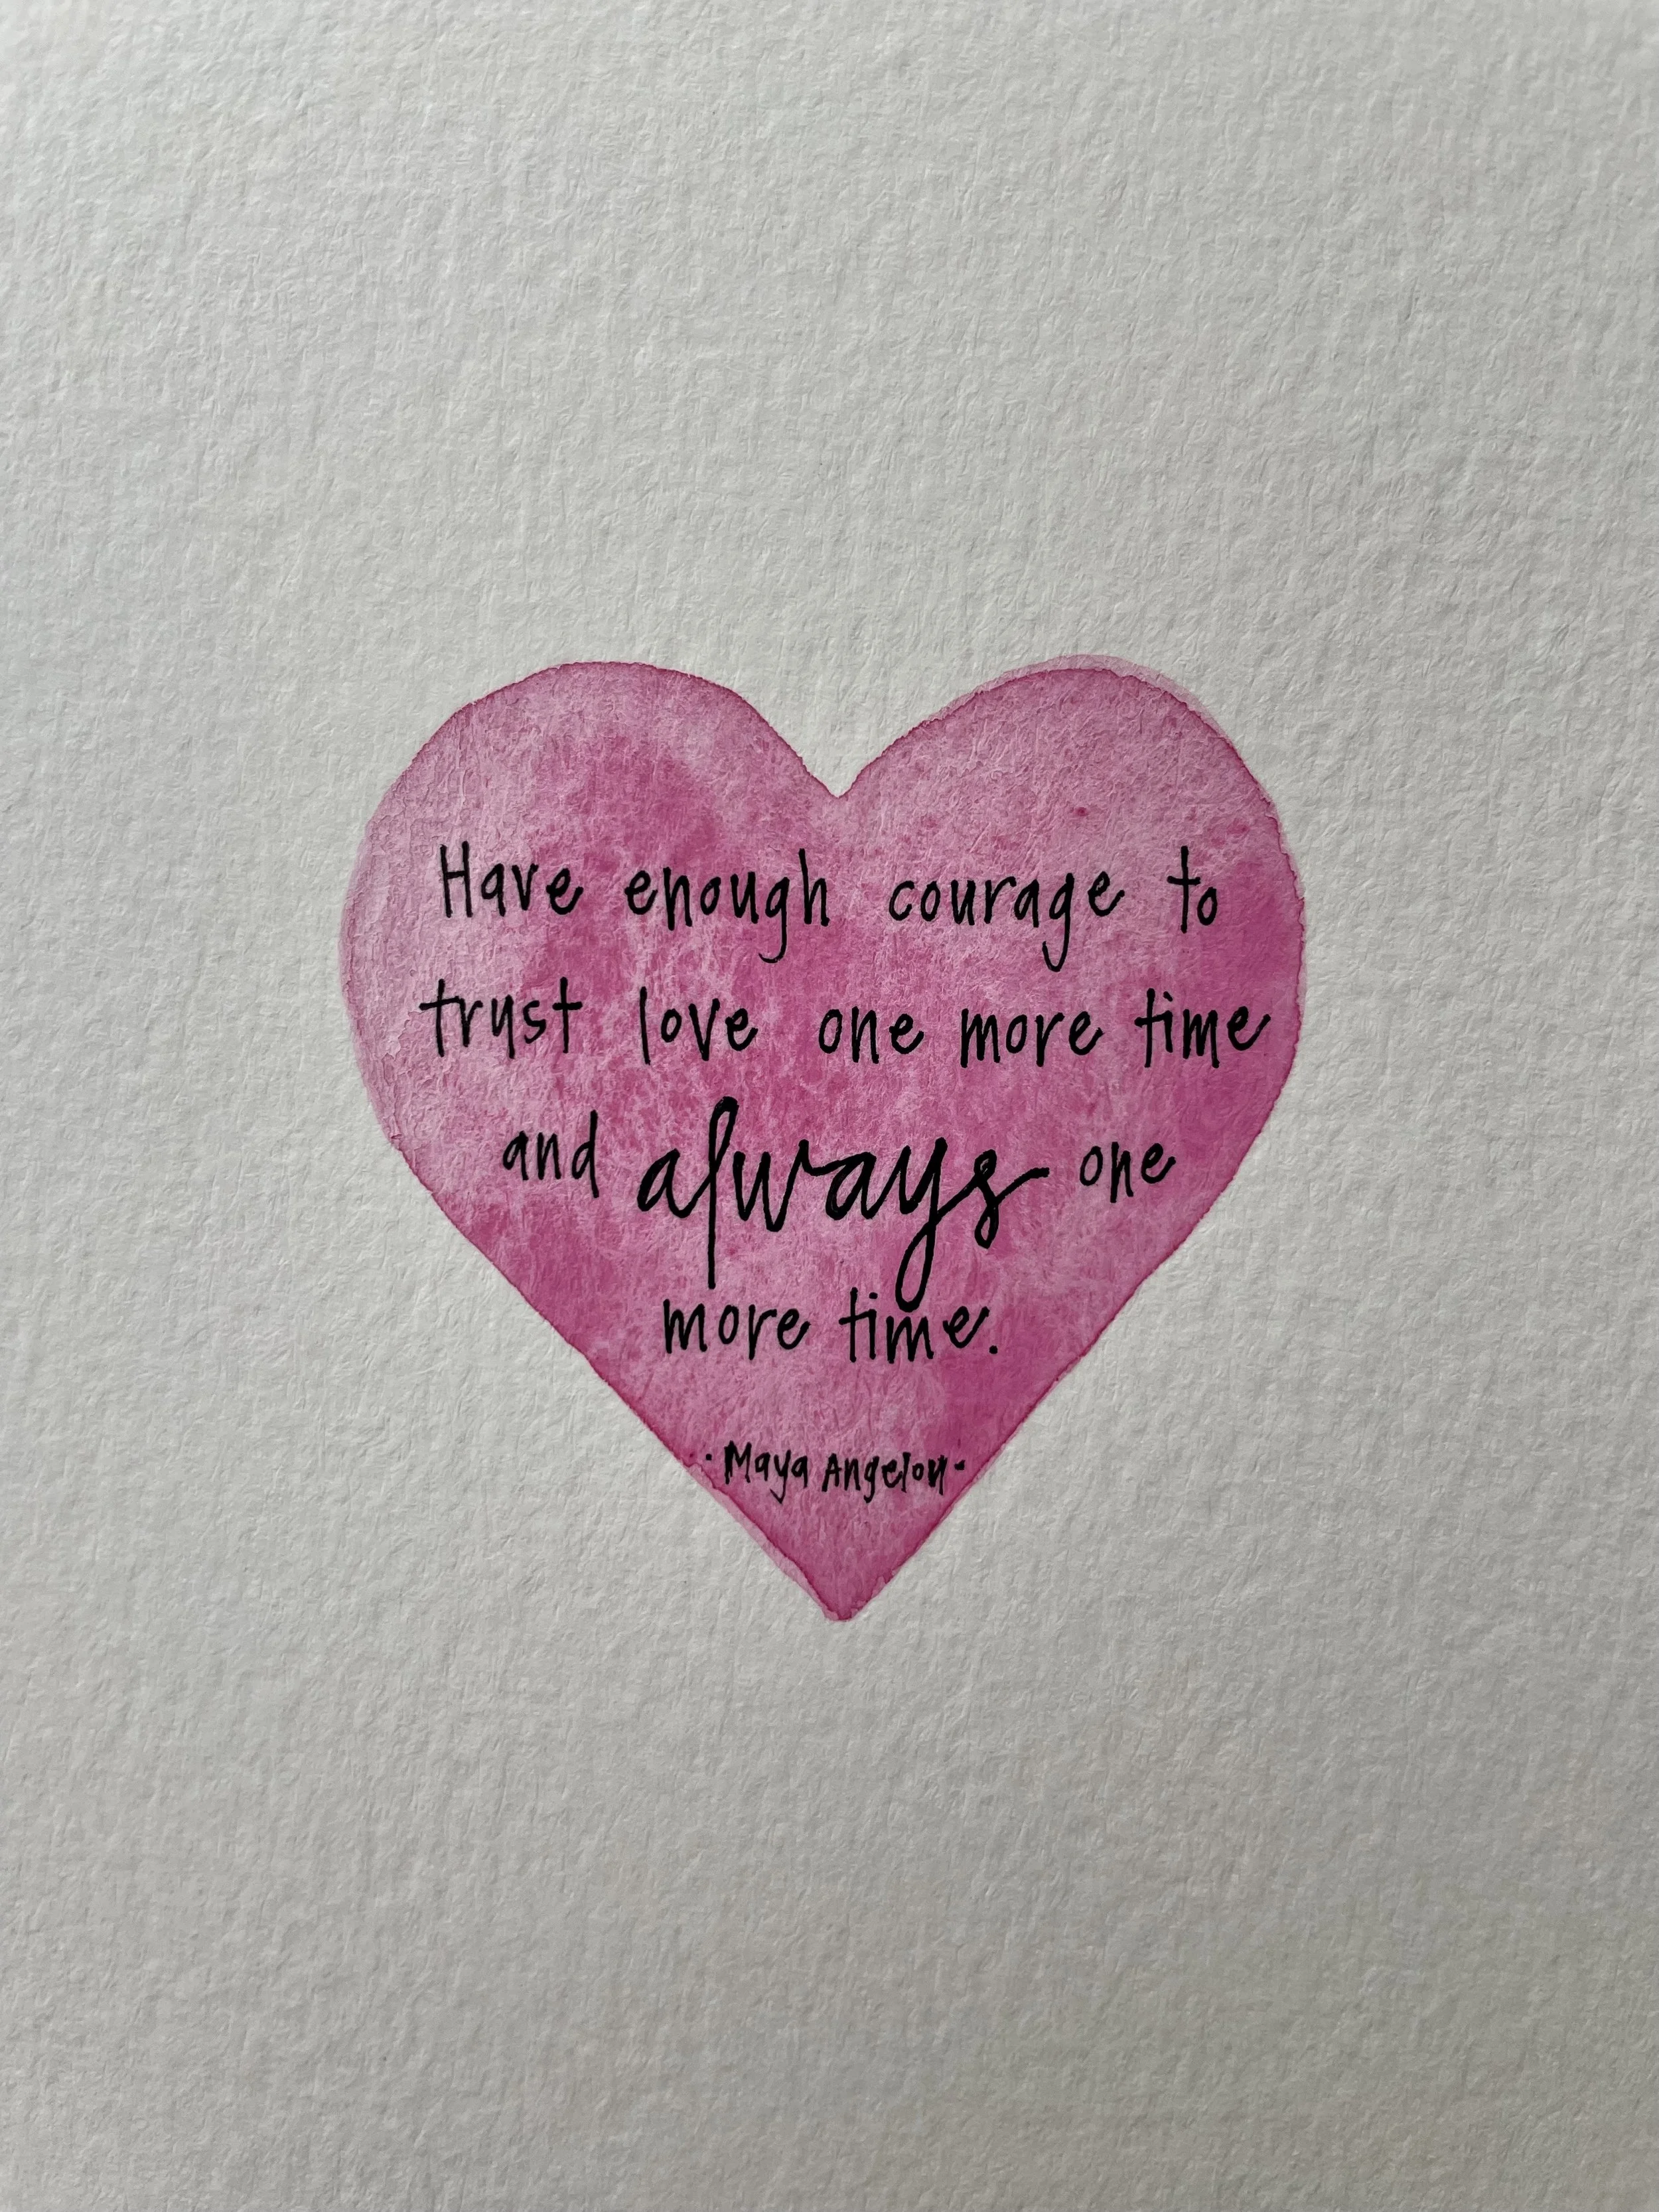 Have enough courage to
trust love one more time
and always one
more time.
·Maya Angelou·